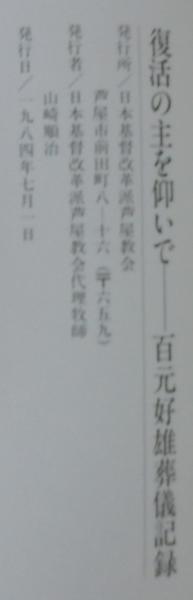 復活の主を仰いで──百元好雄葬儀記録
発行所／日本基督改革派芦屋教会
芦屋市前田町八―十六（〒六五九）
発行者／日本基督改革派芦屋教会代理牧師
山崎順治
発行日／一九八四年七月一日